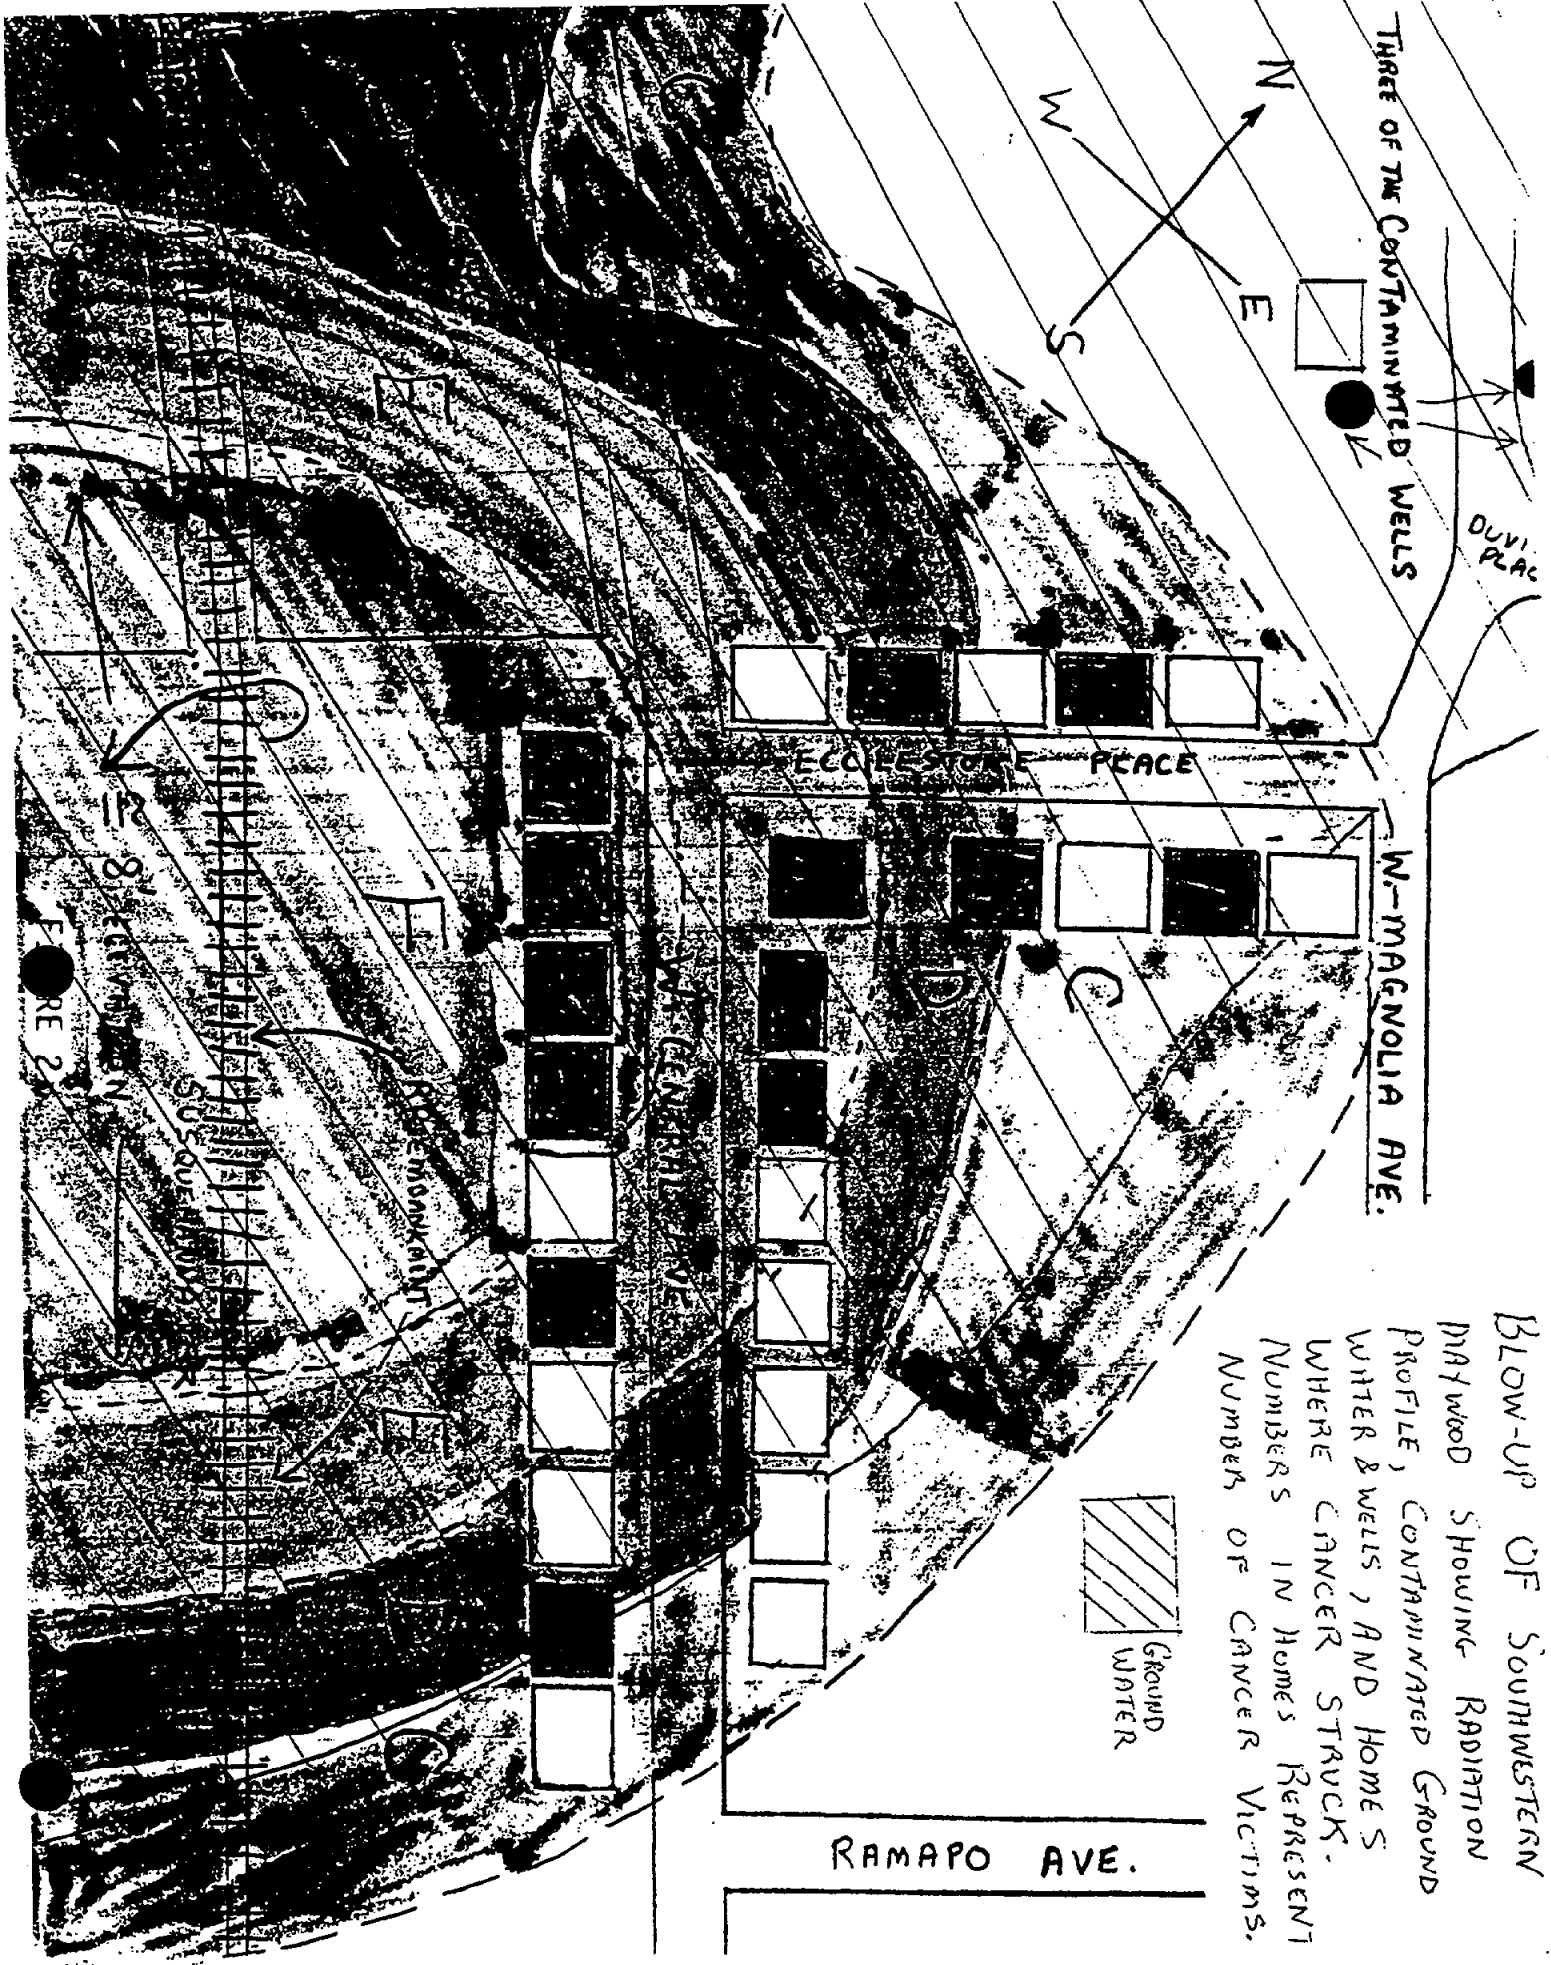 BLOW-UP OF SOUTHWESTERN
MAYWOOD SHOWING RADIATION
PROFILE, CONTAMINATED GROUND
WATER & WELLS, AND HOMES
WHERE CANCER STRUCK.
NUMBERS IN HOMES REPRESENT
NUMBER OF CANCER VICTIMS.
THREE OF THE CONTAMINATED WELLS
N
W
E
S
W. MAGNOLIA AVE.
ECCLESTONE PLACE
W. CENTRAL AVE
RAMAPO AVE.
GROUND
WATER
C
D
E
F
E
C